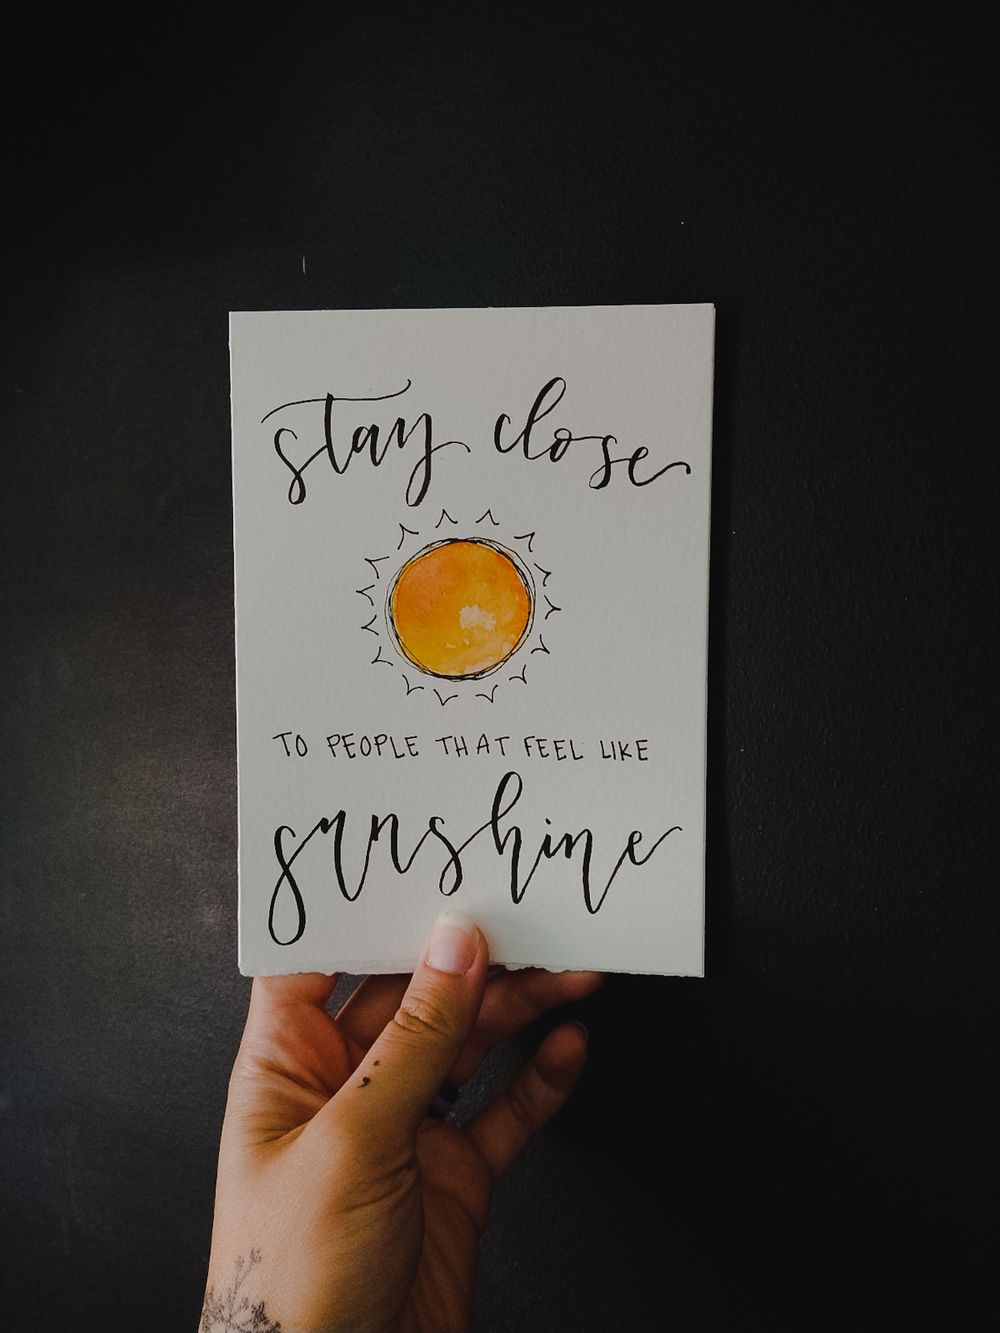 stay close
TO PEOPLE THAT FEEL LIKE
sunshine